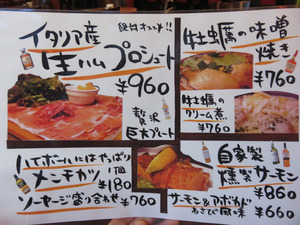 イタリア産
絶対オススメ!!
生ハム プロシュート
¥960
贅沢
巨大プレート
牡蠣の味噌
焼き
¥760
牡蠣の
クリーム煮
¥760
ハイボールにはやっぱり
メンチカツ 1個
¥180
ソーセージ盛り合わせ ¥760
自家製
燻製サーモン
¥860
サーモン&アボカド
わさび風味 ¥660